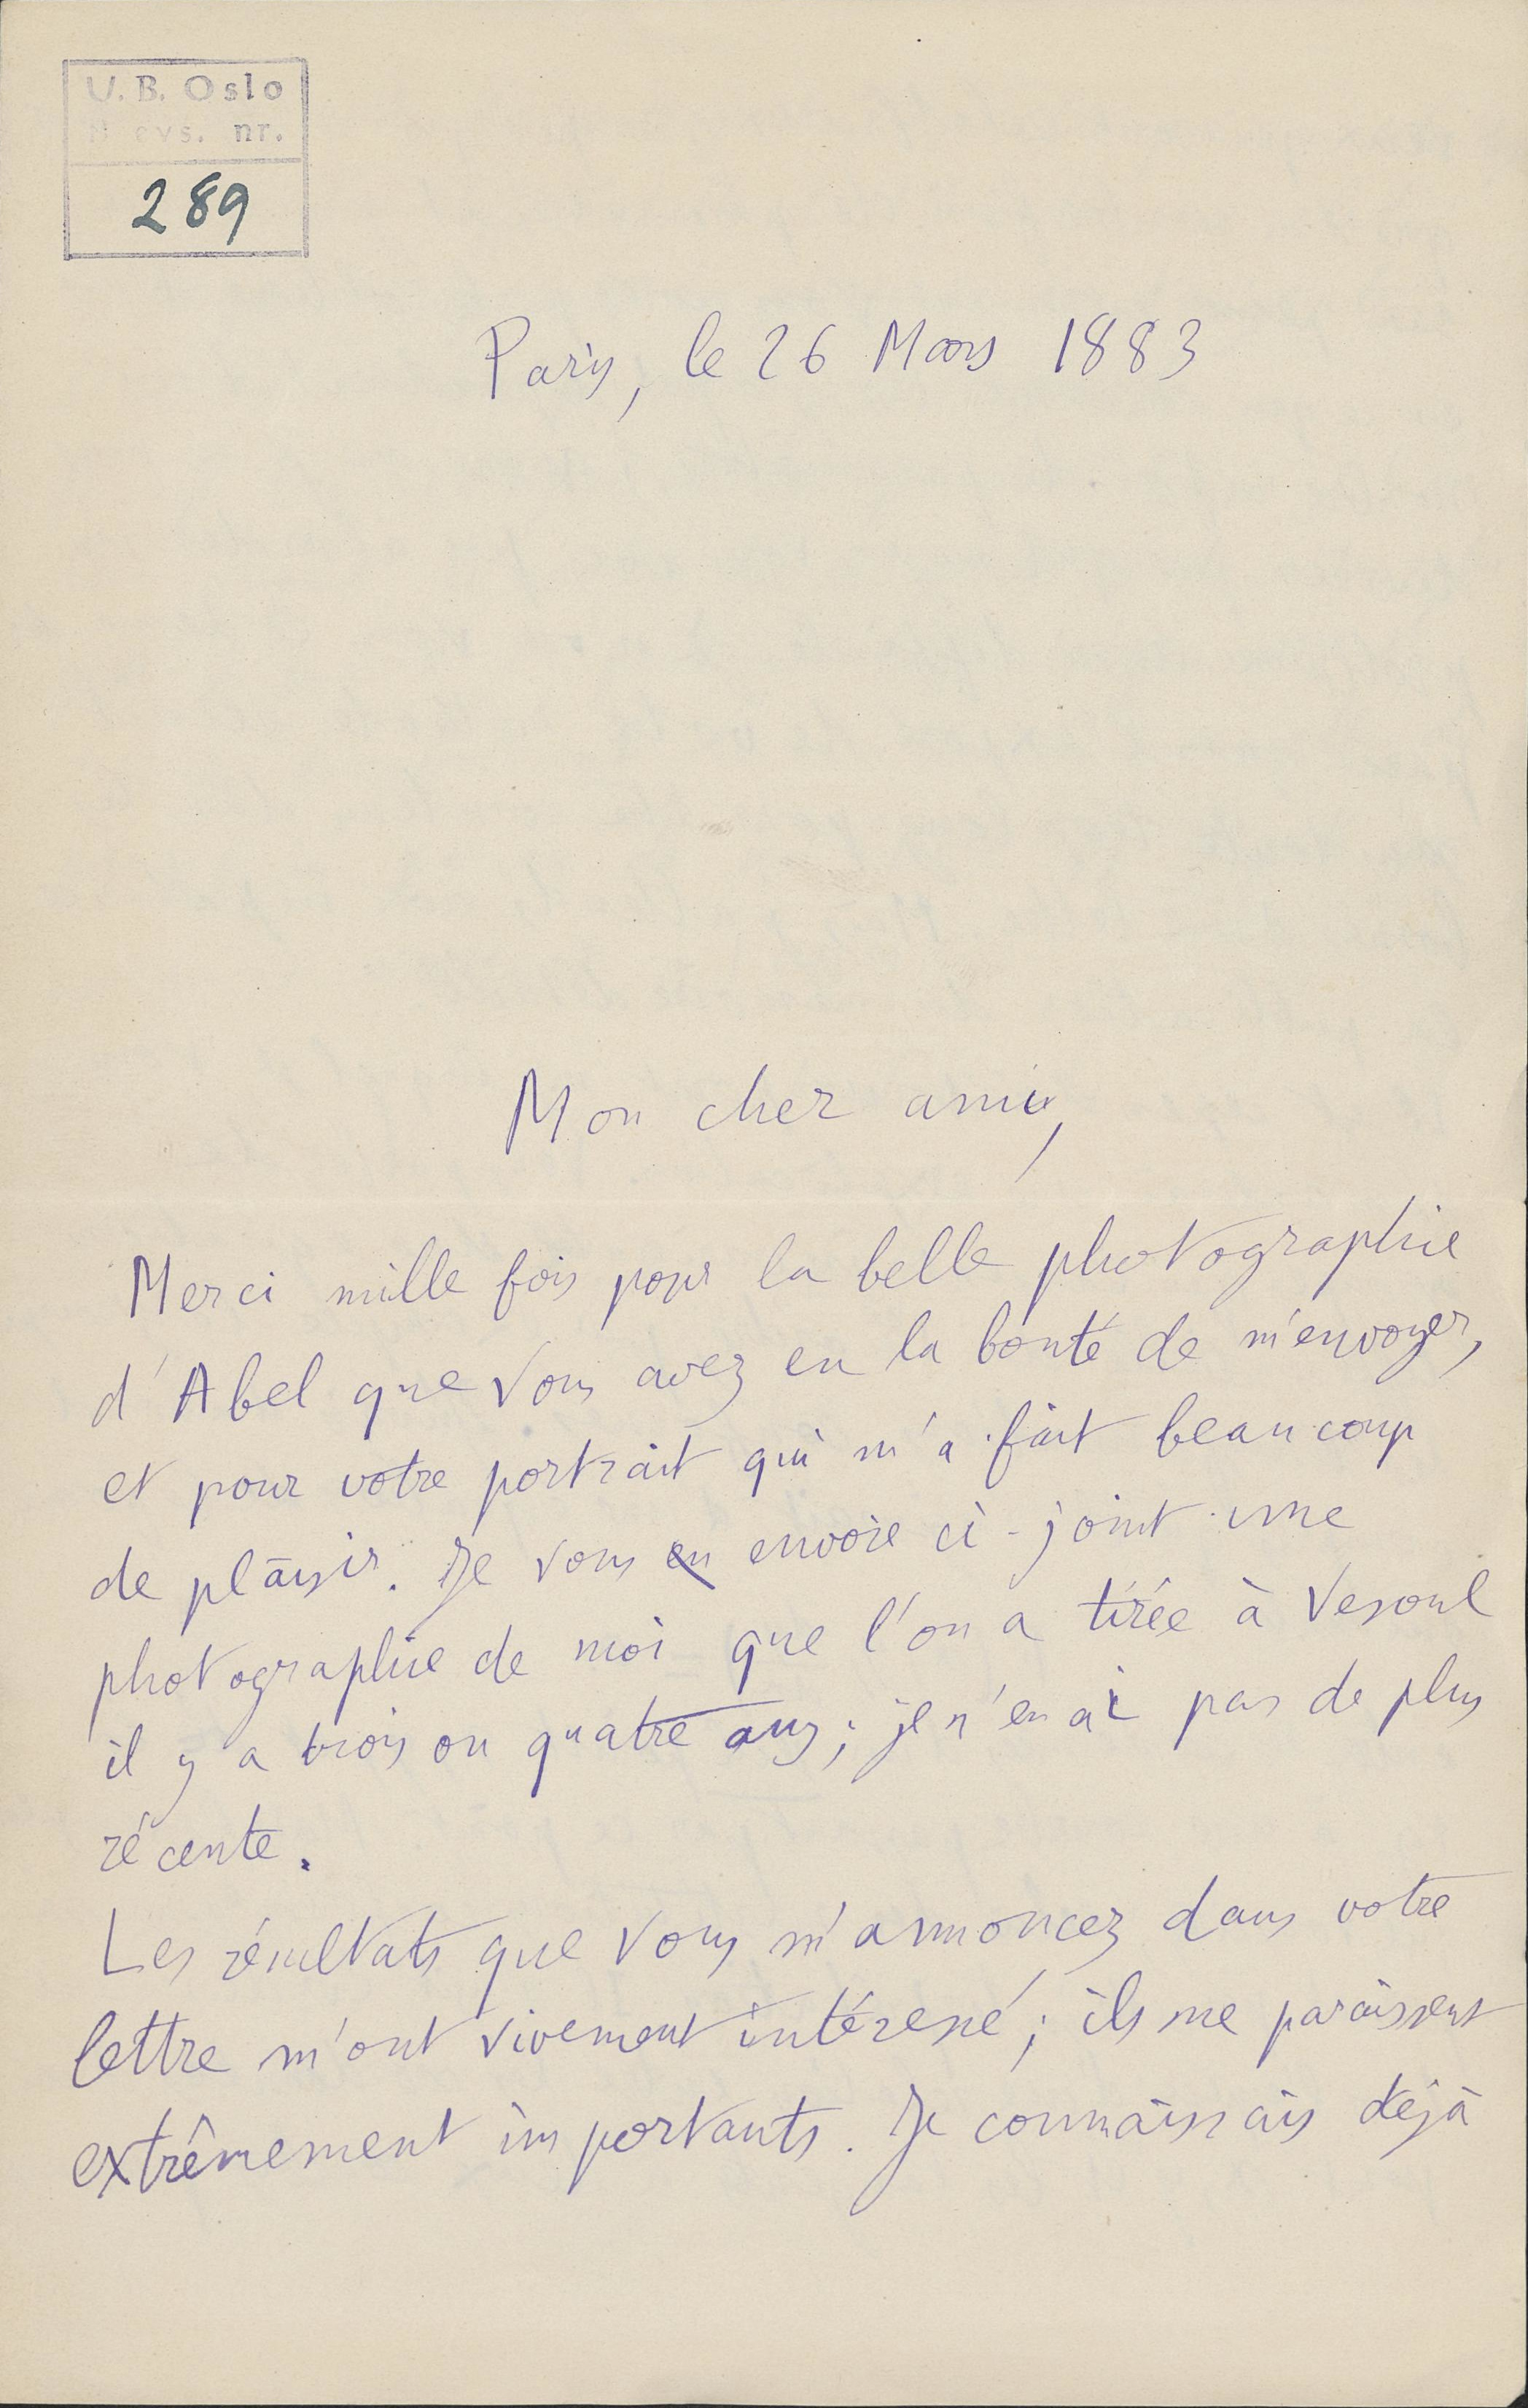 U. B. Oslo
Brevs. nr.
289
Paris, le 26 Mars 1883
Mon cher ami,
Merci mille fois pour la belle photographie
d'Abel que vous avez eu la bonté de m'envoyer,
et pour votre portrait qui m'a fait beaucoup
de plaisir. Je vous en envoie ci-joint une
photographie de moi que l'on a tirée à Vesoul
il y a trois ou quatre ans; je n'en ai pas de plus
récente.
Les résultats que vous m'annoncez dans votre
lettre m'ont vivement intéressé; ils me paraissent
extrêmement importants. Je connaissais déjà